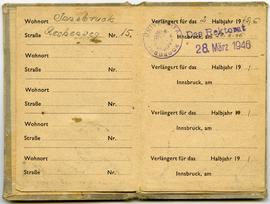 Wohnort Innsbruck
Straße Nr. 15.
Wohnort
Straße Nr.
Wohnort
Straße Nr.
Wohnort
Straße Nr.
Wohnort
Straße Nr.
Verlängert für das 2 Halbjahr 19
Das Rektorat
Innsbruck, am
28. März 1946
Verlängert für das Halbjahr 19
Innsbruck, am
Verlängert für das Halbjahr 19
Innsbruck, am
Verlängert für das Halbjahr 19
Innsbruck, am
Verlängert für das Halbjahr 19
Innsbruck, am